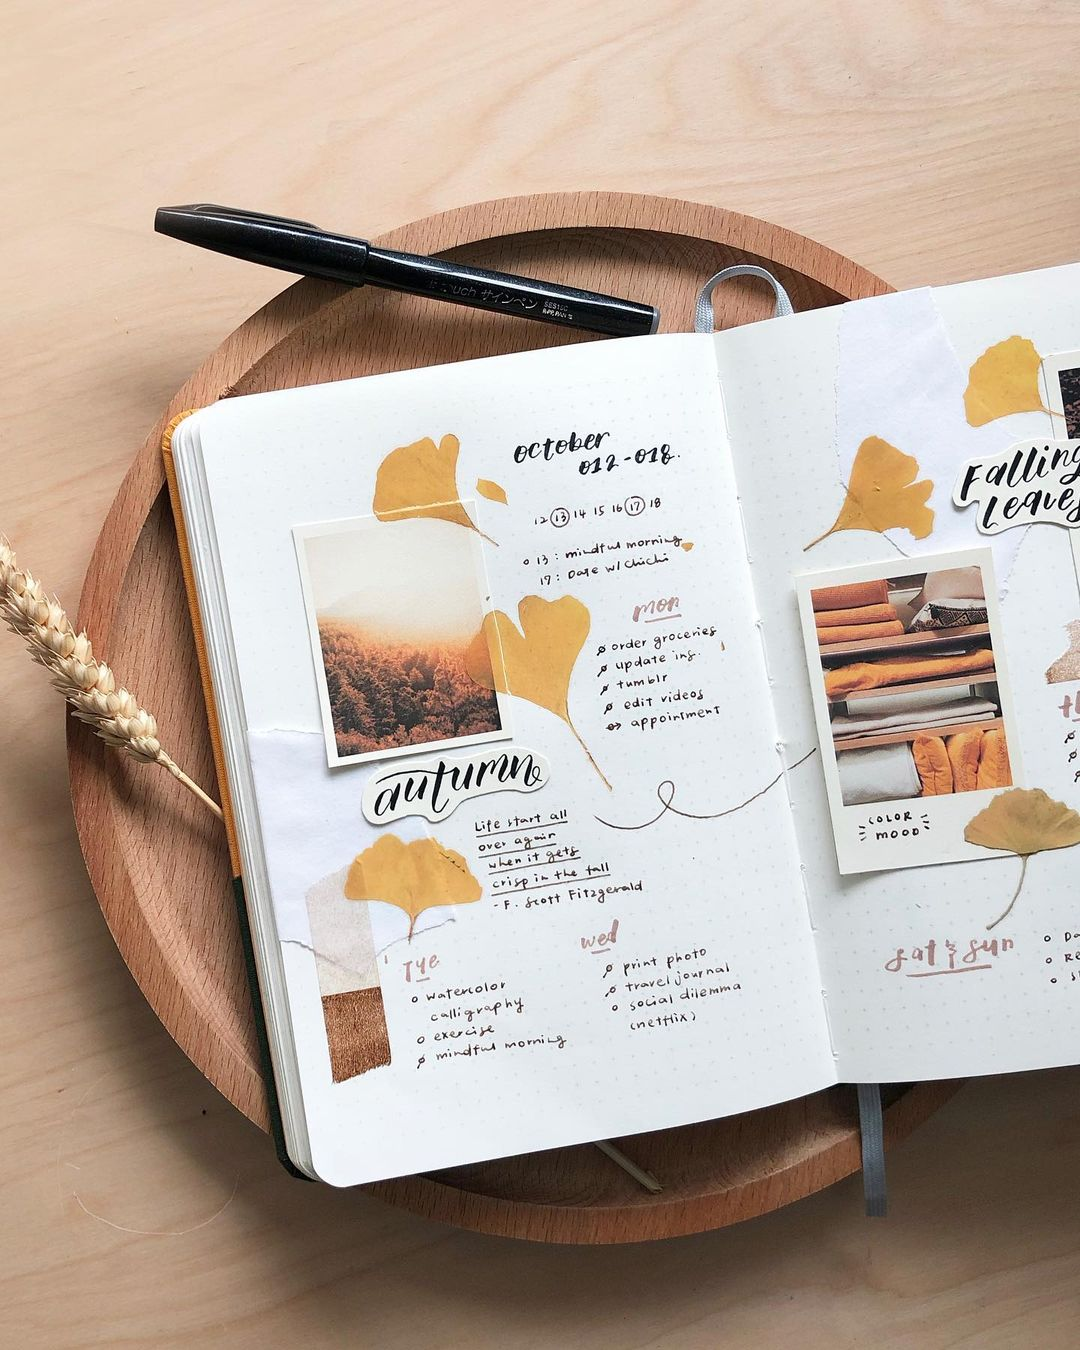 Touch サインペン SES15C
october
012-018.
12 13 14 15 16 17 18
13: mindful morning
17: Date w/ Chichi
mon
order groceries
update ins.
tumblr
edit videos
appointment
autumn
Life start all
over again
when it gets
crisp in the fall
- F. Scott Fitzgerald
Tue
watercolor
calligraphy
exercise
mindful morning
wed
print photo
travel journal
social dilemma
(netflix)
Falling
Leaves
COLOR
MOOD
sat & sun